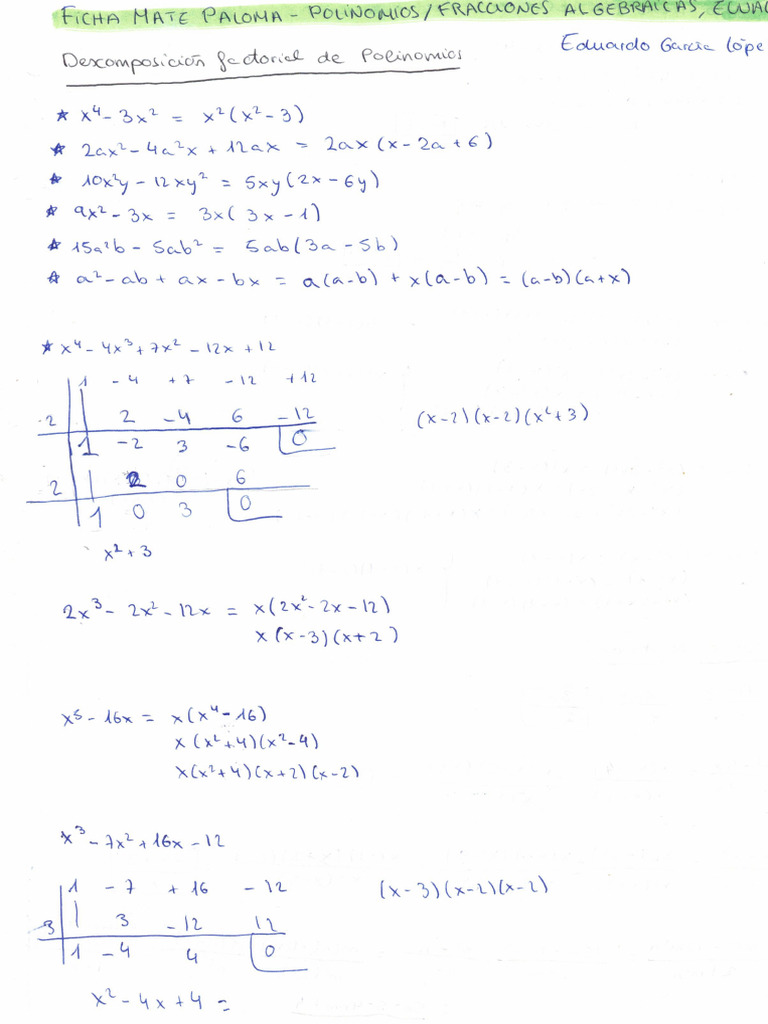 FICHA MATE PALOMA - POLINOMIOS/FRACCIONES ALGEBRAICAS, ECUAC
Eduardo García Lópe
Descomposición factorial de Polinomios
* x⁴ - 3x² = x²(x² - 3)
* 2ax² - 4a²x + 12ax = 2ax (x - 2a + 6)
* 10x²y - 12xy² = 5xy(2x - 6y)
* 9x² - 3x = 3x(3x - 1)
* 15a²b - 5ab² = 5ab(3a - 5b)
* a² - ab + ax - bx = a(a-b) + x(a-b) = (a-b)(a+x)
* x⁴ - 4x³ + 7x² - 12x + 12
1 -4 +7 -12 +12
2 2 -4 6 -12
(x-2)(x-2)(x²+3)
1 -2 3 -6 0
2 2 0 6
1 0 3 0
x² + 3
2x³ - 2x² - 12x = x(2x² - 2x - 12)
x(x-3)(x+2)
x⁵ - 16x = x(x⁴ - 16)
x(x²+4)(x²-4)
x(x²+4)(x+2)(x-2)
x³ - 7x² + 16x - 12
1 -7 +16 -12
(x-3)(x-2)(x-2)
3 3 -12 12
1 -4 4 0
x² - 4x + 4 =